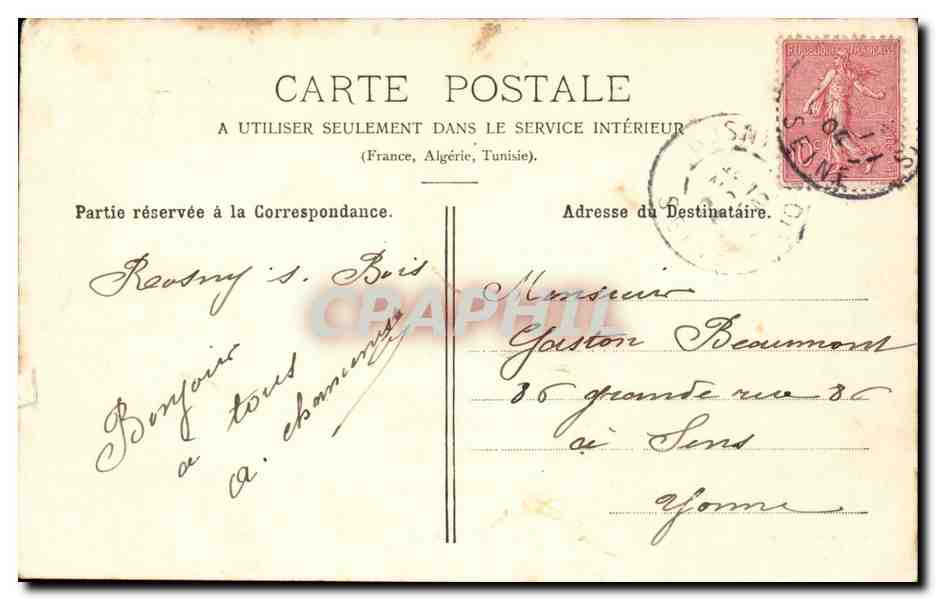 RÉPUBLIQUE FRANÇAISE
CARTE POSTALE
A UTILISER SEULEMENT DANS LE SERVICE INTÉRIEUR
(France, Algérie, Tunisie).
SEINE
Partie réservée à la Correspondance.
Adresse du Destinataire.
Rosny s. Bois
Bonjour
a tous
a.
Monsieur
Gaston Beaumont
86 grande rue 86
à Sens
Yonne
CPAPHIL